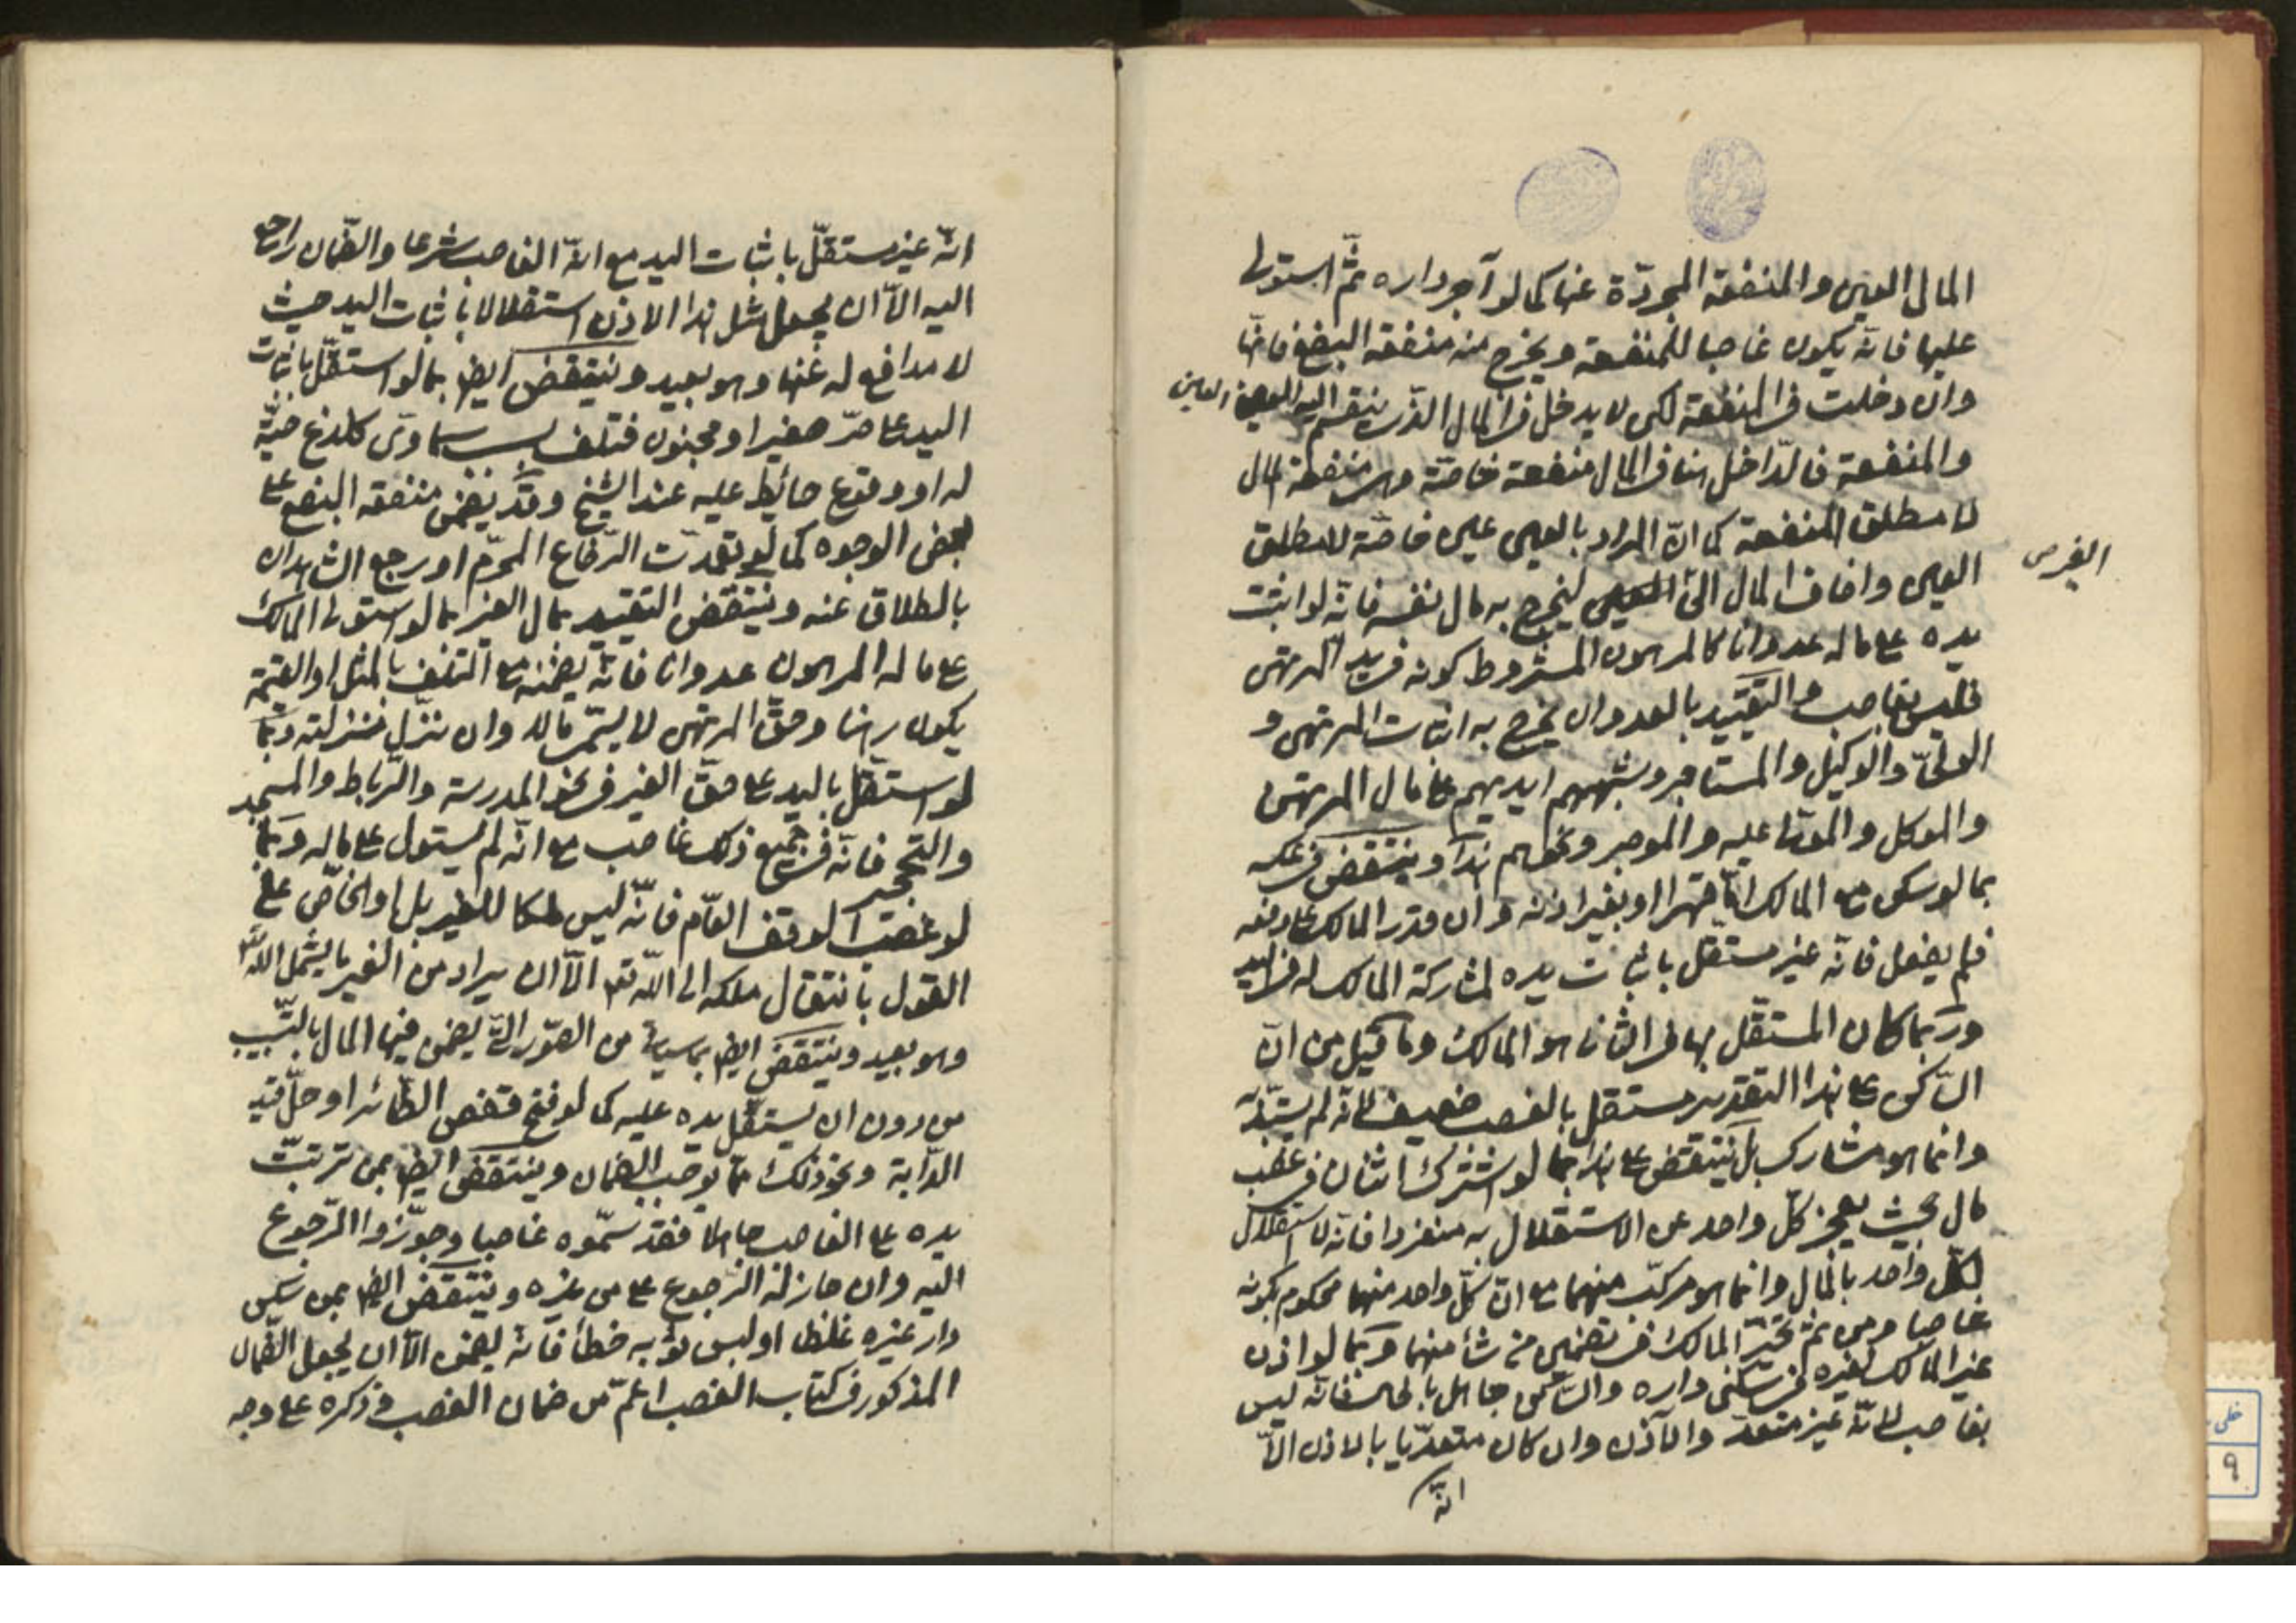 المال العين والمنفعة المجردّة عنها كما لو آجر داره ثمّ استولى
عليها فانّه يكون غاصبا للمنفعة ويخرج منه منفعة البضع فانّها
وان دخلت في المنفعة لكن لا يدخل في المال الذي ينقسم اليه العين
والمنفعة فالدّاخل هنا في المال منفعة خاصّة وهي منفعة المال
لا مطلق المنفعة كما انّ المراد بالعين عين خاصّة لا مطلق
العين واضاف المال الى الغير ليخرج به مال نفسه فانّه لو اثبت
يده على ماله عدوانا كالمرهون المشروط كونه في يد المرتهن
فليس بغاصب والتقييد بالعدوان يخرج به اثبات المرتهن و
الولىّ والوكيل والمستاجر وشبههم ايديهم على مال المرتهن
والموكل والمولى عليه والموجر ونحوهم هذا وينتقض في عكسه
بما لو سكن مع المالك امّا قهرا او بغير اذنه وان قدر المالك على دفعه
فلم يفعل فانّه غير مستقل باثبات يده لمشاركة المالك له في اليد
وربّما كان المستقلّ بها في الثانى هو المالك وما قيل من انّ
السّاكن على هذا التقدير مستقل بالغصب ضعيف لانّه لم يستبدّ
وانما هو مشارك بل ينتقض على هذا بما لو اشترك اثنان في غصب
مال بحيث يعجز كلّ واحد عن الاستقلال به منفردا فانّه لا استقلال
لكلّ واحد بالمال وانما هو مركّب منهما مع انّ كلّ واحد منهما محكوم بكونه
غاصبا ومن ثمّ تخيّر المالك في تضمين من شاء منهما وبما لو اذن
غير المالك لغيره في سكنى داره والسّاكن جاهل بالحال فانّه ليس
بغاصب لانّه غير متعدّ والآذن وان كان متعدّيا بالاذن الّا
انّه
الغير ص
انّه غير مستقلّ باثبات اليد مع انّه الغاصب شرعا والضّمان راجع
اليه الّا ان يجعل مثل هذا الاذن استقلالا باثبات اليد حيث
لا مدافع له عنها وهو بعيد وينتقض ايضا بما لو استقلّ باثبات
اليد على حرّ صغير او مجنون فتلف بسبب سماوى كلدغ حيّة
له او وقوع حائط عليه عند الشيخ وقد يضمن منفعة البضع على
بعض الوجوه كما لو تعمدت الرّضاع المحرّم او رجع الشاهدان
بالطلاق عنه وينتقض التقييد بمال الغير بما لو استولى المالك
على ماله المرهون عدوانا فانّه يضمنه مع التلف بالمثل او القيمة
يكون رهنا وحقّ المرتهن لا يسمّى مالا وان نزّل منزلته وبما
لو استقلّ باليد على حقّ الغير في نحو المدرسة والرّباط والمسجد
والتحجير فانّه في جميع ذلك غاصب مع انّه لم يستول على ماله وبما
لو غصب الوقف العّام فانّه ليس ملكا للغير بل او الخاصّ على
القول بانتقال ملكه الى اللّه تعم الّا ان يراد من الغير ما يشمل اللّه
وهو بعيد وينتقض ايضا بما سياتى من الصّور التى يضمن فيها المال بالتسبّب
من دون ان يستقلّ يده عليه كما لو فتح قفص الطّائر او حلّ قيد
الدّابة ونحو ذلك ممّا يوجب الضمان وينتقض ايضا بمن ترتبّت
يده على الغاصب جاهلا فقد سمّوه غاصبا وجوّزوا الرّجوع
اليه وان جاز له الرجوع على من غرّه وينتقض ايضا بمن سكن
دار غيره غلطا او لبس ثوبه خطأ فانّه يضمن الّا ان يجعل الضّمان
المذكور في كتاب الغصب اعمّ من ضمان الغصب وذكره على وجه
خلى
٩